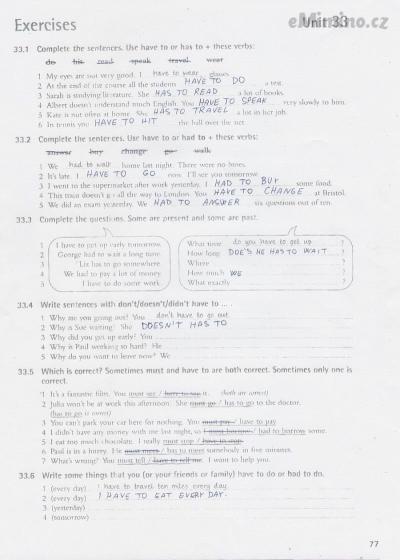 eMimino.cz
Exercises Unit 33
33.1 Complete the sentences. Use have to or has to + these verbs:
do hit read speak travel wear
1 My eyes are not very good. I have to wear glasses.
2 At the end of the course all the students HAVE TO DO a test.
3 Sarah is studying literature. She HAS TO READ a lot of books.
4 Albert doesn't understand much English. You HAVE TO SPEAK very slowly to him.
5 Kate is not often at home. She HAS TO TRAVEL a lot in her job.
6 In tennis you HAVE TO HIT the ball over the net.
33.2 Complete the sentences. Use have to or had to + these verbs:
answer buy change go walk
1 We had to walk home last night. There were no buses.
2 It's late. I HAVE TO GO now. I'll see you tomorrow.
3 I went to the supermarket after work yesterday. I HAD TO BUY some food.
4 This train doesn't go all the way to London. You HAVE TO CHANGE at Bristol.
5 We did an exam yesterday. We HAD TO ANSWER six questions out of ten.
33.3 Complete the questions. Some are present and some are past.
1 I have to get up early tomorrow. What time do you have to get up ?
2 George had to wait a long time. How long DOES HE HAS TO WAIT ?
3 Liz has to go somewhere. Where ?
4 We had to pay a lot of money. How much WE ?
5 I have to do some work. What exactly ?
33.4 Write sentences with don't/doesn't/didn't have to ... .
1 Why are you going out? You don't have to go out.
2 Why is Sue waiting? She DOESN'T HAS TO
3 Why did you get up early? You
4 Why is Paul working so hard? He
5 Why do you want to leave now? We
33.5 Which is correct? Sometimes must and have to are both correct. Sometimes only one is
correct.
1 It's a fantastic film. You must see / have to see it. (both are correct)
2 Julia won't be at work this afternoon. She must go / has to go to the doctor.
(has to go is correct)
3 You can't park your car here for nothing. You must pay / have to pay
4 I didn't have any money with me last night, so I must borrow / had to borrow some.
5 I eat too much chocolate. I really must stop / have to stop
6 Paul is in a hurry. He must meet / has to meet somebody in five minutes.
7 What's wrong? You must tell / have to tell me. I want to help you.
33.6 Write some things that you (or your friends or family) have to do or had to do.
1 (every day) I have to travel ten miles every day.
2 (every day) I HAVE TO EAT EVERY DAY.
3 (yesterday)
4 (tomorrow)
77